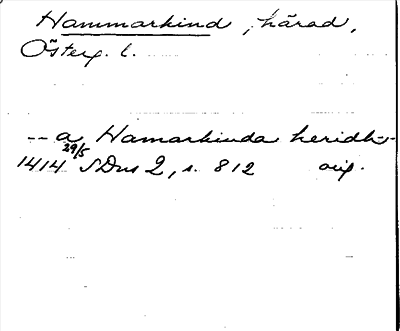 Hammarkind, härad,
Österg. l.
-- a Hamarkinda heridh-
1414 29/5 SDns 2, s. 812 orig.